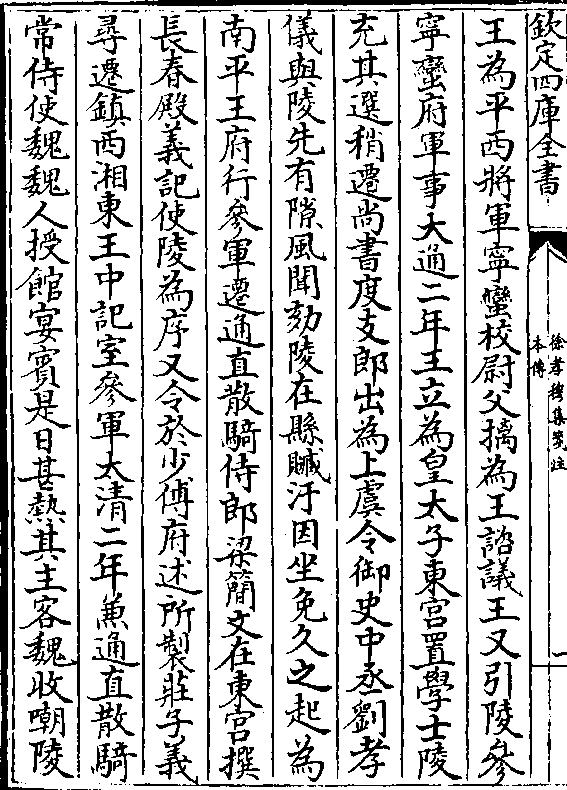 欽定四庫全書
徐孝穆集箋注
本傳
王為平西將軍寧蠻校尉父摛為王諮議王又引陵參
寧蠻府軍事大通二年王立為皇太子東宮置學士陵
充其選稍遷尚書度支郎出為上虞令御史中丞劉孝
儀與陵先有隙風聞劾陵在縣贓汙因坐免久之起為
南平王府行參軍遷通直散騎侍郎梁簡文在東宮撰
長春殿義記使陵為序又令於少傅府述所製莊子義
尋遷鎮西湘東王中記室參軍太清二年兼通直散騎
常侍使魏魏人授館宴賓是日甚熱其主客魏收嘲陵